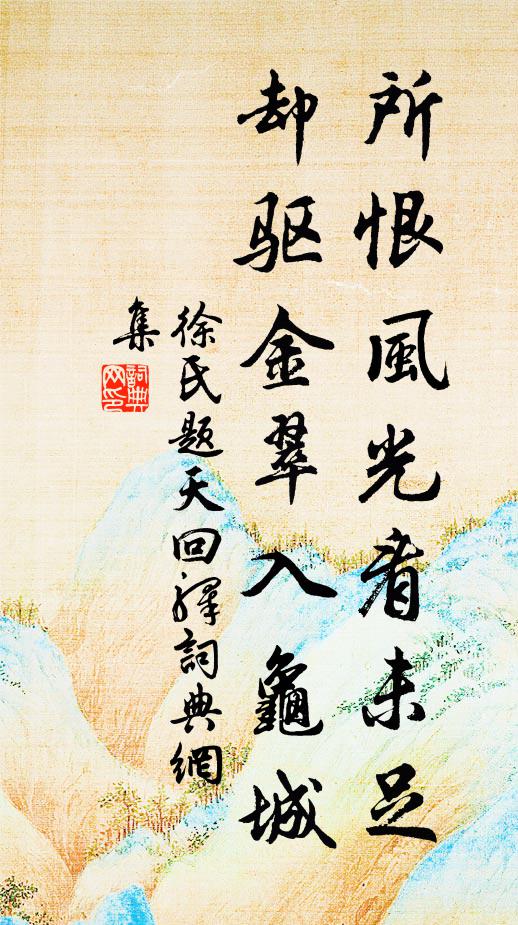 所恨風光看未足
却驱金翠入龜城
徐氏题天回驿詞典網
集
詞典
网印